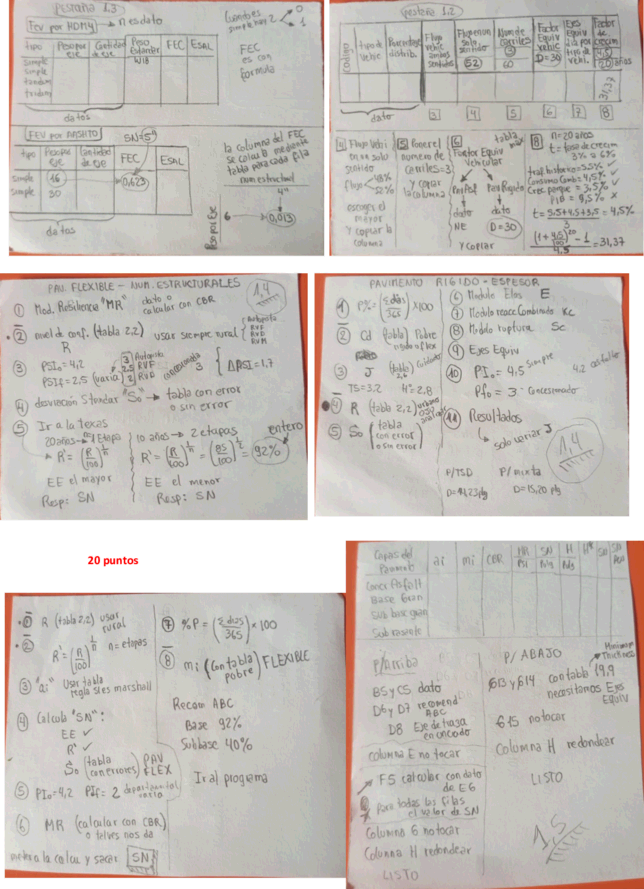 Pestaña 1.3
FEV por HDM4 → n es dato
Cuando es simple hay 2 → 0
→ 1
FEC es con formula
tipo
Peso por eje
Cantidad de eje
Peso Estanter
W18
FEC
ESAL
simple
simple
tandem
tridem
datos
FEV por AASHTO
SN=5"
tipo
Peso por Eje
Cantidad de eje
FEC
ESAL
simple 16 0,623
simple 30
datos
la columna del FEC
se coloca mediante
tabla para cada fila
non estructural
4"
Peso por Eje
6 0,013
Pestaña 1.2
Codigo
tipo de Vehic
Porcentaje distrib.
Flujo vehic ambos sentidos
Flujo en un solo sentido
52
Num de carriles
3
60
Factor Equiv vehic
D=30
Ejes Equiv dia por tipo de vehi.
Factor de crecim
4,5
20 años
31,37
dato
3 4 5 6 7 8
4 Flujo Vehi
en un solo
sentido
Flujo 48%
52%
escoges el
mayor
y copiar la
columna
5 Poner el
numero de
carriles=3
y copiar
la columna
6 Factor Equiv
Vehicular
tabla
Pav Flef.
dato
NE
Pav Rigido
dato
D=30
y copiar
8 n=20 años
t= tasa de crecim
3% a 6%
traf. historico=5,5% ✓
Consumo Comb=4,5% ✓
Crec parque = 3,5% ✓
PIB = 9,5% x
t= 5,5+4,5+3,5 = 4,5%
3
(1+ 4,5/100)^20 - 1 = 31,37
4.5
PAV. FLEXIBLE - NUM. ESTRUCTURALES
1,4
① Mod. Resilence "MR" dato o
calcular con CBR
② nivel de conf. (tabla 2,2) usar siempre rural
R
Autopista
RVF
RVD
RVM
③ PSI₀ = 4,2
PSIf = 2,5 (varia)
3 Autopista
2,5 RVF
2 RVD
concesionada 3
ΔPSI=1,7
④ desviación Standar "S₀" → tabla con error
o sin error
⑤ Ir a la texas
20 años → 1 Etapa
R' = (R/100)^1/n
EE el mayor
Resp: SN
10 años → 2 etapas
entero
R' = (R/100)^1/n = (85/100)^1/2 = 92%
EE el menor
Resp: SN
PAVIMENTO RIGIDO - ESPESOR
① P% = (Σ dias/365) x100
② Cd (tabla) Pobre
③ J (tabla) Cuidado
TS=3,2 H=2,8
④ R (tabla 2,2)
⑤ S₀ (tabla
con error
o sin error)
⑥ Modulo Elas E
⑦ Modulo reacc Combinado Kc
⑧ Modulo ruptura Sc
⑨ Ejes Equiv
⑩ PI₀ = 4,5 siempre
4,2 asfalter
Pf₀ = 3 - Concesionado
11 Resultados
solo variar J
1,4
P/TSD
P/mixta
D=15,20 plg
20 puntos
① R (tabla 2,2) usar
rural
② R' = (R/100)^1/n n= etapas
③ "ai" usar tabla
regla si es marshall
④ Calcula "SN":
EE ✓
R' ✓
S₀ (tabla
con errores) PAV
FLEX
⑤ PI₀=4,2 PIf= 2 departamental
varia
⑥ MR (calcular con CBR)
o talves nos da
metero la calcu y sacar SN
⑦ %P = (Σ dias/365) x 100
⑧ mi (con tabla
pobre) FLEXIBLE
Recom ABC
Base 92%
Subbase 40%
Ir al programa
Capas del Paviment
ai
mi
CBR
MR Psi
SN Pulg
H Pulg
H*
SN
Conc Asfalt
Base Gran
Sub base gran
Subrasante
P/arriba
B5 y C5 dato
D6 y D7 recomend
ABC
D8 Eje de traza
en uncodo
columna E no tocar
F5 calcular con dato
da E6
para todas las filas
el valor de SN
Columna G no tocar
Columna H redondear
LISTO
P/ ABAJO
G13 y G14 con tabla 19.9
necesitamos Ejes
Equiv
Minimum
Thickness
G15 no tocar
Columna H redondear
LISTO
1,5